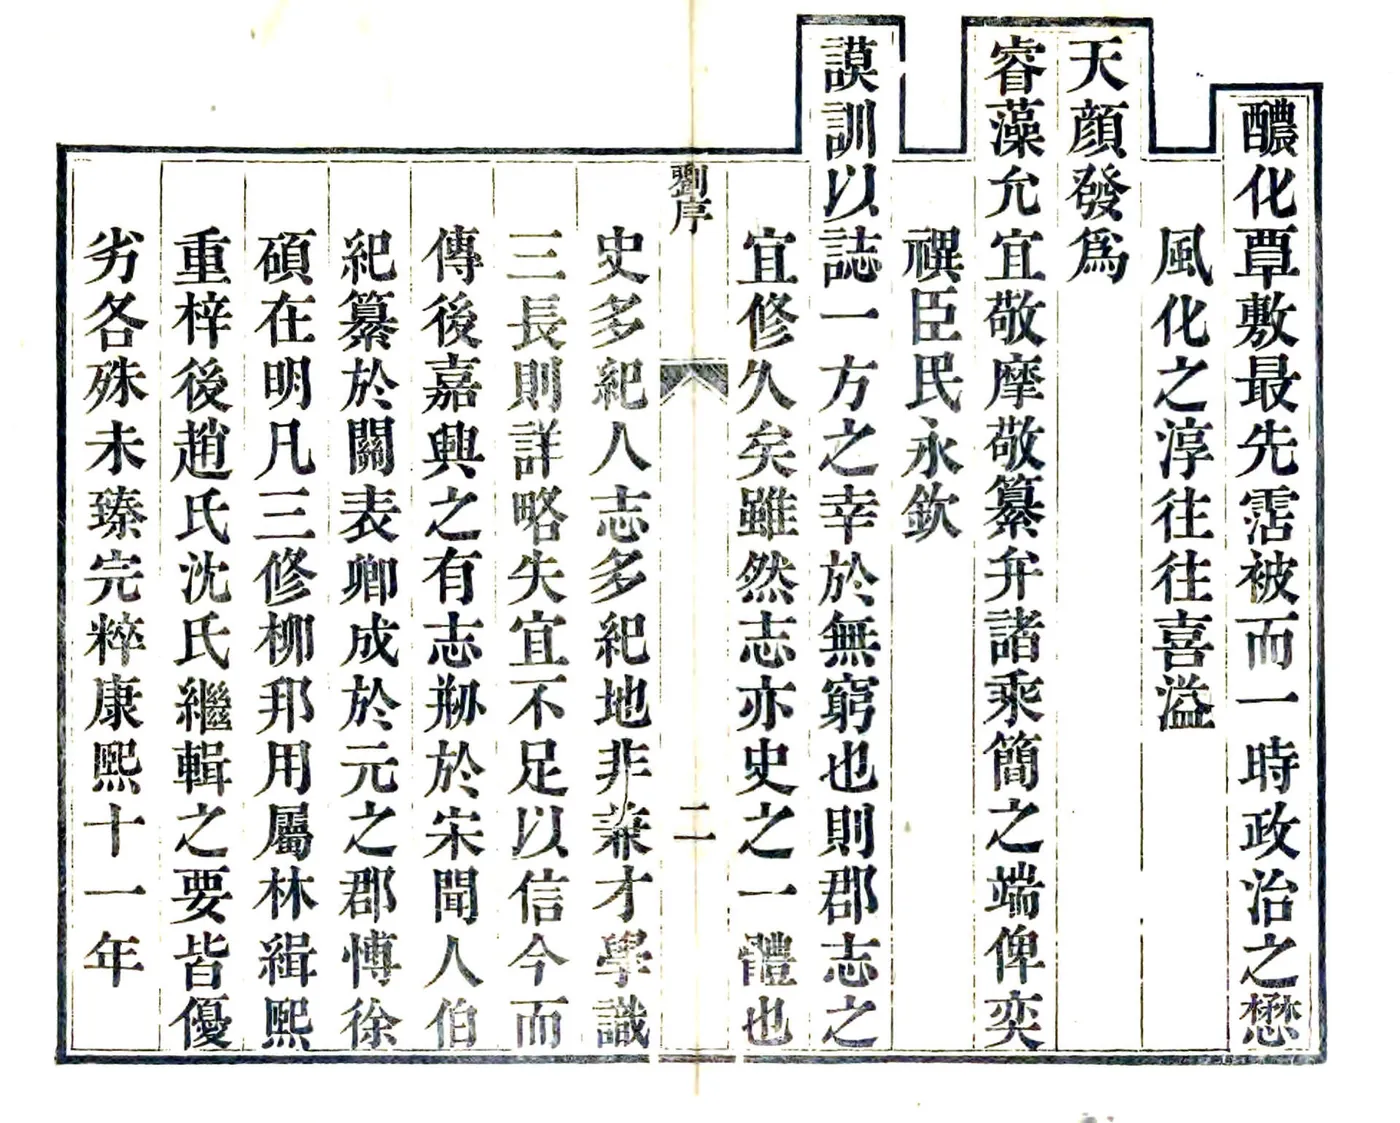 醲化覃敷最先霑被而一時政治之懋
風化之淳往往喜溢
天顔發爲
睿藻允宜敬摩敬纂弁諸乘簡之端俾奕
禩臣民永欽
謨訓以誌一方之幸於無窮也則郡志之
宜修久矣雖然志亦史之一體也
劉序
二
史多紀人志多紀地非兼才學識
三長則詳略失宜不足以信今而
傳後嘉興之有志刱於宋聞人伯
紀纂於關表卿成於元之郡博徐
碩在明凡三修柳邦用屬林緝熙
重梓後趙氏沈氏繼輯之要皆優
劣各殊未臻完粹康熙十一年